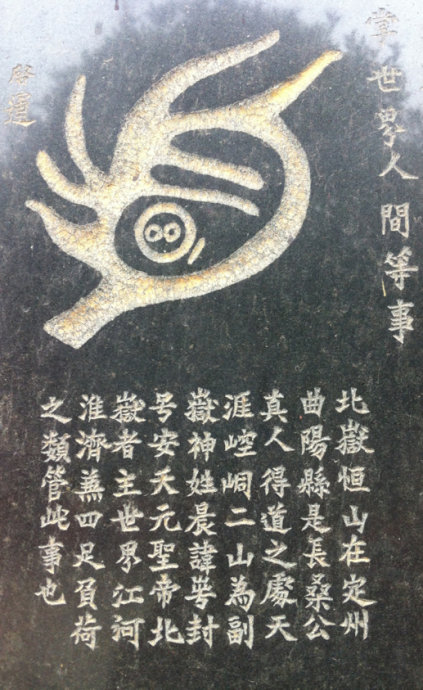 掌世界人間等事
北嶽恒山在定州
曲陽縣是長桑公
真人得道之處天
涯崆峒二山為副
嶽神姓晨諱萼封
号安天元聖帝北
嶽者主世界江河
淮濟兼四足負荷
之類管此事也